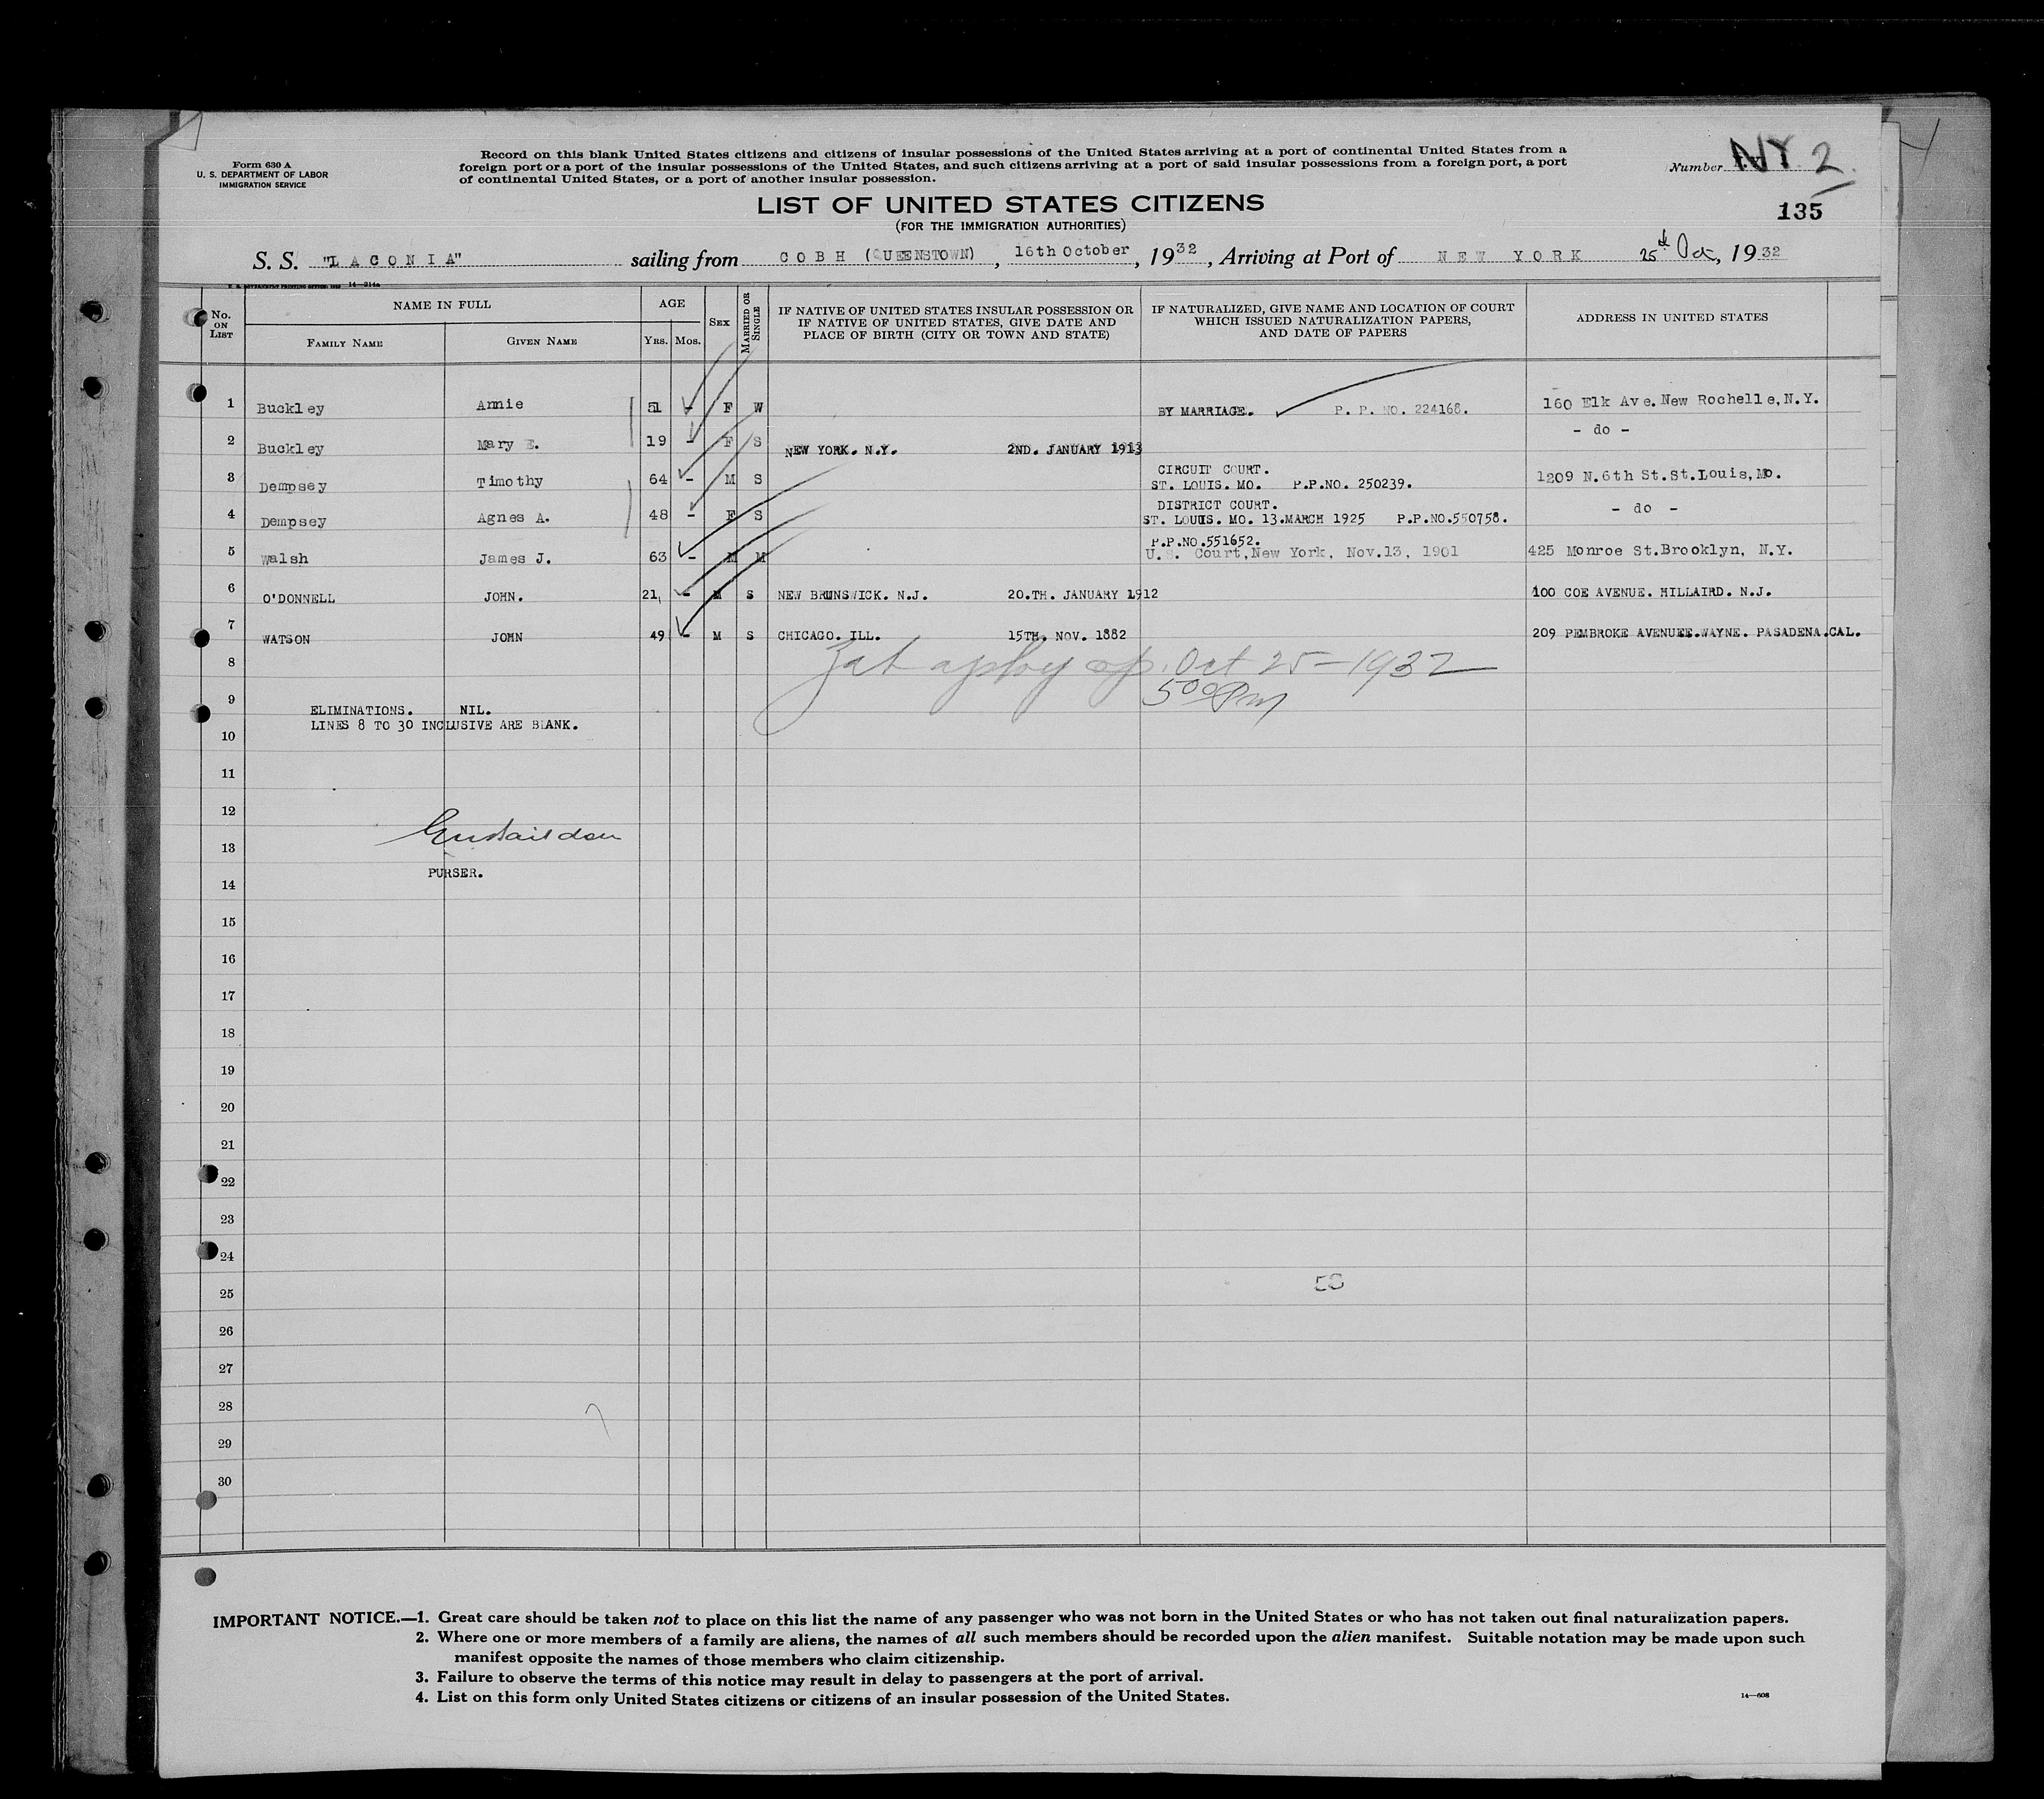 Form 630 A
U. S. DEPARTMENT OF LABOR
IMMIGRATION SERVICE
Record on this blank United States citizens and citizens of insular possessions of the United States arriving at a port of continental United States from a
foreign port or a port of the insular possessions of the United States, and such citizens arriving at a port of said insular possessions from a foreign port, a port
of continental United States, or a port of another insular possession.
Number NY 2
135
LIST OF UNITED STATES CITIZENS
(FOR THE IMMIGRATION AUTHORITIES)
S. S. "LACONIA" sailing from COBH (QUEENSTOWN), 16th October, 1932, Arriving at Port of NEW YORK 25th Oct, 1932
14—314a
No. ON LIST
NAME IN FULL
FAMILY NAME GIVEN NAME
AGE
YRS. MOS.
SEX
MARRIED OR SINGLE
IF NATIVE OF UNITED STATES INSULAR POSSESSION OR
IF NATIVE OF UNITED STATES, GIVE DATE AND
PLACE OF BIRTH (CITY OR TOWN AND STATE)
IF NATURALIZED, GIVE NAME AND LOCATION OF COURT
WHICH ISSUED NATURALIZATION PAPERS,
AND DATE OF PAPERS
ADDRESS IN UNITED STATES
1 Buckley Annie 51 - F W BY MARRIAGE. P. P. NO. 224168. 160 Elk Ave. New Rochelle, N.Y.
2 Buckley Mary E. 19 - F S NEW YORK. N.Y. 2ND. JANUARY 1913 - do -
3 Dempsey Timothy 64 - M S CIRCUIT COURT.
ST. LOUIS. MO. P.P.NO. 250239. 1209 N.6th St.St.Louis, Mo.
4 Dempsey Agnes A. 48 - F S DISTRICT COURT.
ST. LOUIS. MO. 13.MARCH 1925 P.P.NO.550758. - do -
P.P.NO.551652.
5 Walsh James J. 63 - M M U.S. Court, New York, Nov.13, 1901 425 Monroe St.Brooklyn, N.Y.
6 O'DONNELL JOHN. 21 - M S NEW BRUNSWICK. N.J. 20.TH. JANUARY 1912 100 COE AVENUE. HILLAIRD. N.J.
7 WATSON JOHN 49 - M S CHICAGO. ILL. 15TH. NOV. 1882 209 PEMBROKE AVENUEE.WAYNE. PASADENA.CAL.
8
Oct 25-1932
5 00 Pm
9
ELIMINATIONS. NIL.
LINES 8 TO 30 INCLUSIVE ARE BLANK.
10
11
12
13
PURSER.
14
15
16
17
18
19
20
21
22
23
24
25
26
27
28
29
30
IMPORTANT NOTICE.—1. Great care should be taken not to place on this list the name of any passenger who was not born in the United States or who has not taken out final naturalization papers.
2. Where one or more members of a family are aliens, the names of all such members should be recorded upon the alien manifest. Suitable notation may be made upon such
manifest opposite the names of those members who claim citizenship.
3. Failure to observe the terms of this notice may result in delay to passengers at the port of arrival.
4. List on this form only United States citizens or citizens of an insular possession of the United States.
14—608